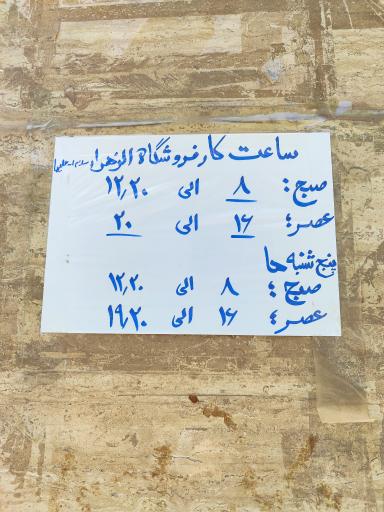 ساعت کار فروشگاه الزهرا سلام اله علیها
صبح: ۸ الی ۱۲٫۲۰
عصر: ۱۶ الی ۲۰
پنج شنبه ها
صبح: ۸ الی ۱۲٫۲۰
عصر: ۱۶ الی ۱۹٫۲۰